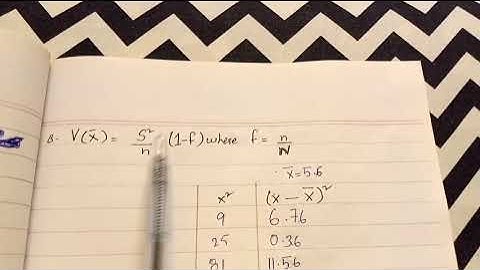 8. V(x̄) = S²/n (1-f) where f = n/N
x̄ = 5.6
x² (x - x̄)²
9 6.76
25 0.36
81 11.56